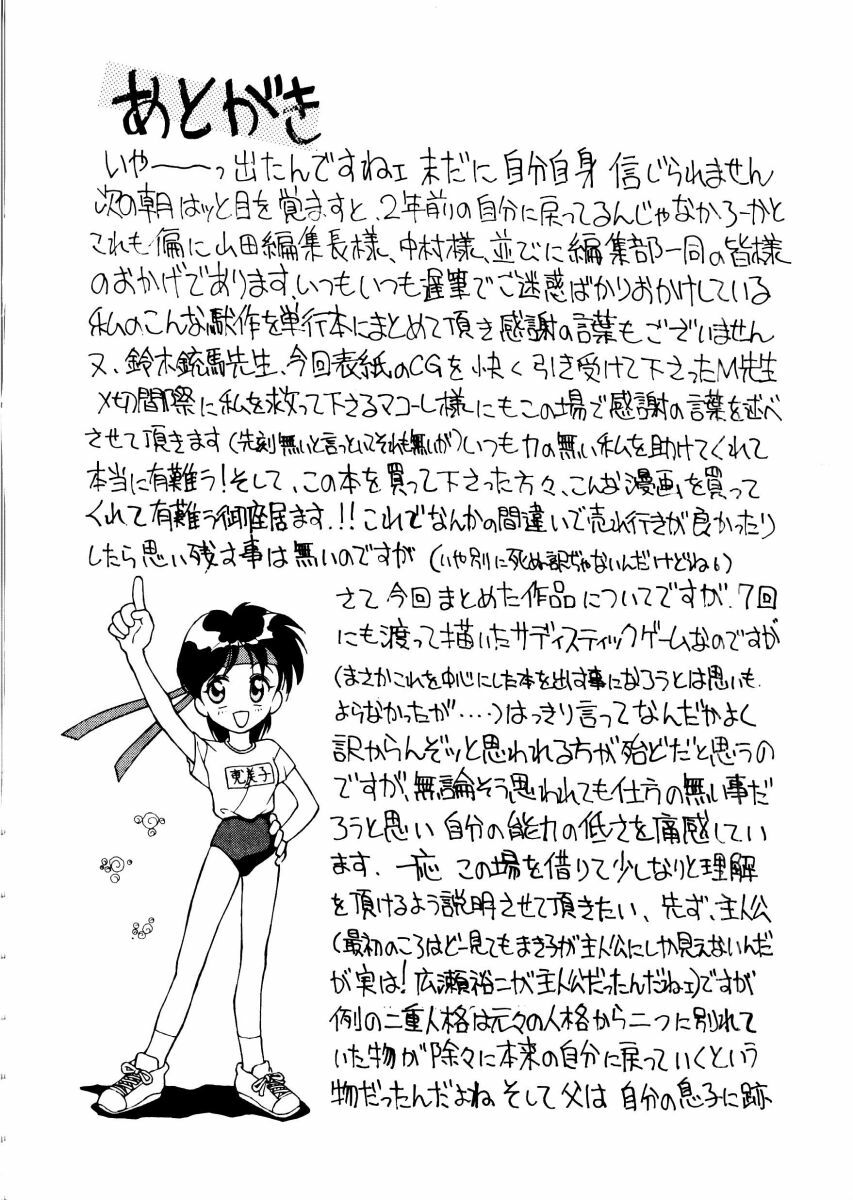 あとがき
いやーーっ出たんですねェ 未だに自分自身 信じられません
次の朝はッと目を覚ますと、2年前の自分に戻ってるんじゃなかろーかと
これも偏に山田編集長様、中村様、並びに編集部一同の皆様
のおかげであります、いつもいつも遅筆でご迷惑ばかりおかけしている
私のこんな駄作を単行本にまとめて頂き感謝の言葉もございません
又、鈴木銃馬先生、今回表紙のCGを快く引き受けて下さったM先生
〆切間際に私を救って下さるマコーレ様にもこの場で感謝の言葉を述べ
させて頂きます(先刻無いと言っといてそれも無いが)いつも力の無い私を助けてくれて
本当に有難う!そして、この本を買って下さった方々、こんな漫画を買って
くれて有難う御座居ます.!!これでなんかの間違いで売れ行きが良かったり
したら思い残す事は無いのですが(いや別に死ぬ訳ぢゃないんだけどねぇ)
さて今回まとめた作品についてですが、7回
にも渡って描いたサディスティックゲームなのですが
(まさかこれを中心にした本を出す事になろうとは思いも
よらなかったが‥‥)はっきり言ってなんだかよく
訳からんぞッと思われる方が殆どだと思うの
ですが、無論そう思われても仕方の無い事だ
ろうと思い 自分の能力の低さを痛感してい
ます、一応 この場を借りて少しなりと理解
を頂けるよう説明させて頂きたい、先ず、主人公
(最初のころはどー見てもまき子が主人公にしか見えないんだ
が実は!広瀬裕二が主人公だったんだねェ)ですが
例の二重人格は元々の人格から二つに別れて
いた物が除々に本来の自分に戻っていくという
物だったんだよね そして父は 自分の息子に跡
恵美子